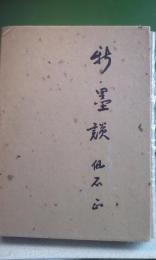 新墨談
伹石 正